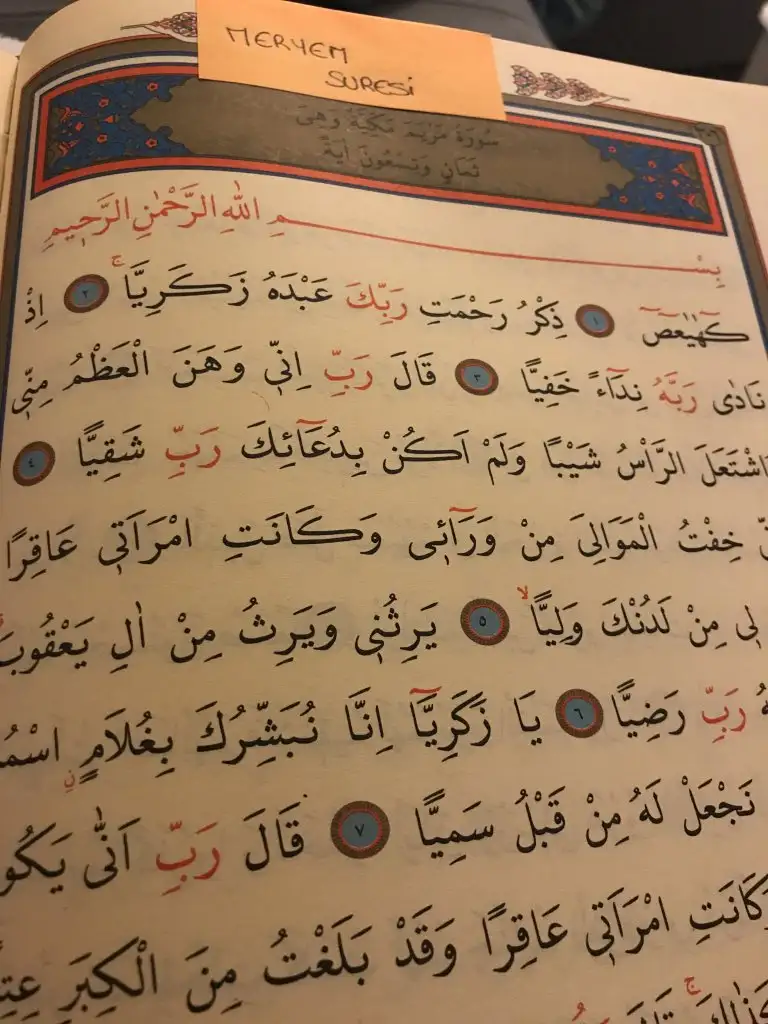 MERYEM
SURESİ
سُورَةُ مَرْيَمَ مَكِّيَّةٌ وَهِىَ
ثَمَانٍ وَتِسْعُونَ اٰيَةً
بِسْــــمِ اللّٰهِ الرَّحْمٰنِ الرَّحٖيمِ
كٓهٰيٰعٓصٓ ١ ذِكْرُ رَحْمَتِ رَبِّكَ عَبْدَهُ زَكَرِيَّاۚ ٢ اِذْ
نَادٰى رَبَّهُ نِدَٓاءً خَفِيًّا ٣ قَالَ رَبِّ اِنّٖى وَهَنَ الْعَظْمُ مِنّٖى
وَاشْتَعَلَ الرَّاْسُ شَيْبًا وَلَمْ اَكُنْ بِدُعَٓائِكَ رَبِّ شَقِيًّا ٤
خِفْتُ الْمَوَالِىَ مِنْ وَرَٓائٖى وَكَانَتِ امْرَاَتٖى عَاقِرًا
لٖى مِنْ لَدُنْكَ وَلِيًّاۙ ٥ يَرِثُنٖى وَيَرِثُ مِنْ اٰلِ يَعْقُوبَ
رَبِّ رَضِيًّا ٦ يَا زَكَرِيَّٓا اِنَّا نُبَشِّرُكَ بِغُلَامٍ اسْمُ
نَجْعَلْ لَهُ مِنْ قَبْلُ سَمِيًّا ٧ قَالَ رَبِّ اَنّٰى يَكُو
وَكَانَتِ امْرَاَتٖى عَاقِرًا وَقَدْ بَلَغْتُ مِنَ الْكِبَرِ عِتِ
كَذٰلِكَۚ قَالَ